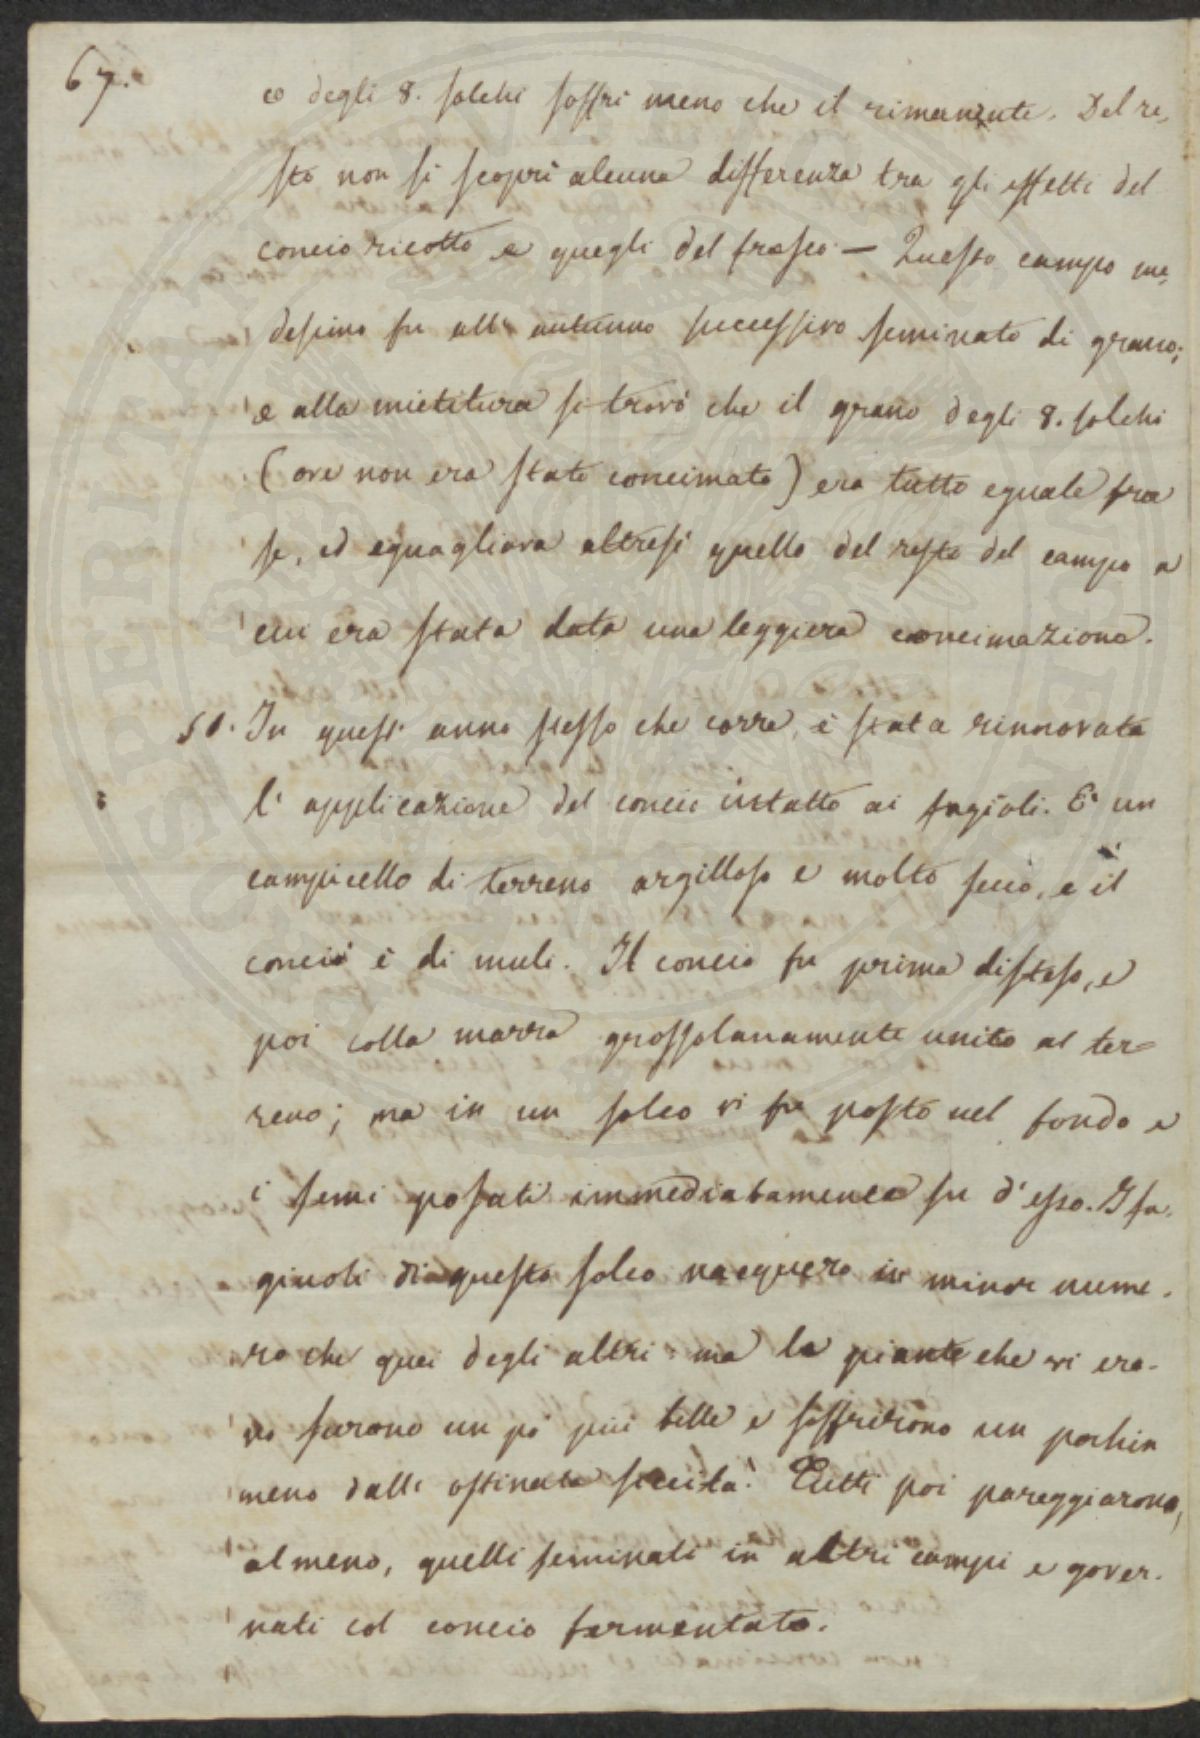 67.
co degli 8. solchi soffrì meno che il rimanente. Del re,
sto non si scoprì alcuna differenza tra gli effetti del
concio ricotto e quegli del fresco — Questo campo me,
desimo fu all' autunno successivo seminato di grano;
e alla mietitura si trovò che il grano degli 8. solchi
(ove non era stato concimato) era tutto eguale fra
se, ed eguagliava altresì quello del resto del campo a
cui era stata data una leggiera concimazione.
51. In quest' anno stesso che corre, è stata rinnovata
l' applicazione del concio intatto ai fagioli. È un
campicello di terreno argilloso e molto secco, e il
concio è di muli. Il concio fu prima disteso, e
poi colla marra grossolanamente unito al ter=
reno; ma in un solco vi fu posto nel fondo e
i semi posati immediatamente su d' esso. I fa.
giuoli di questo solco nacquero in minor nume.
ro che quei degli altri: ma le piante che vi era.
no furono un pò più belle e soffrirono un pochin
meno dalla ostinata siccità. Tutti poi pareggiarono,
almeno, quelli seminati in altri campi e gover.
nati col concio fermentato.